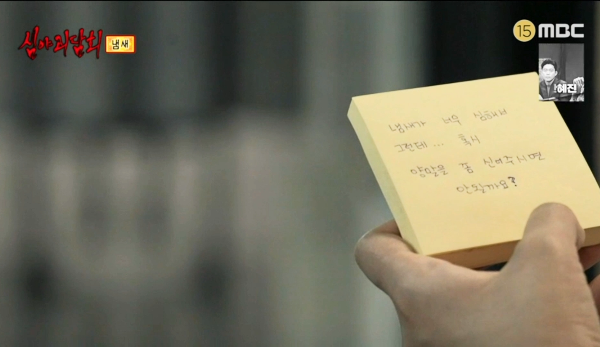 심야괴담회
냄새
15 MBC
혜진
냄새가 너무 심해서
그런데... 혹시
양말을 좀 신어주시면
안될까요?